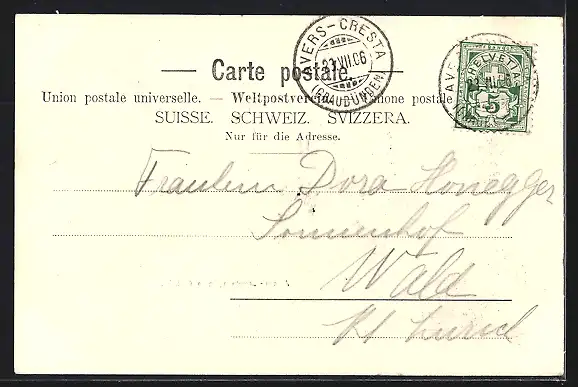 AVERS-CRESTA
23.VII.06
(GRAUBÜNDEN)
HELVETIA
5
— Carte postale. —
Union postale universelle. — Weltpostverein. — Unione postale
SUISSE. SCHWEIZ. SVIZZERA.
Nur für die Adresse.
Fräulein Dora Honegger
Sonnenhof
Wald
Kt Zürich